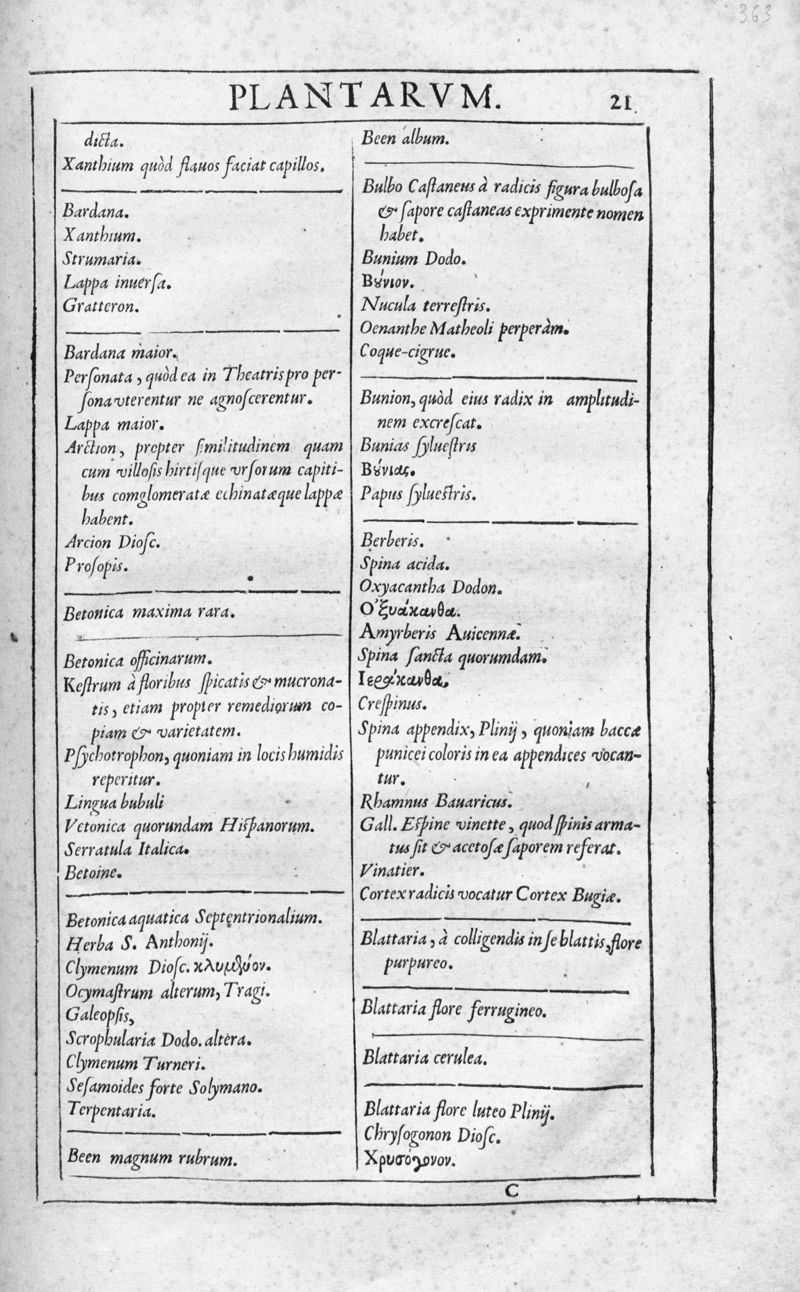 363
PLANTARVM.
21
dicta.
Xanthium quòd flauos faciat capillos.
Bardana.
Xanthium.
Strumaria.
Lappa inuersa.
Gratteron.
Bardana maior.
Personata, quòd ea in Theatris pro per-
sona vterentur ne agnoscerentur.
Lappa maior.
Arction, prepter similitudinem quam
cum villosis hirtisque vrsorum capiti-
bus comglomeratæ echinatæque lappæ
habent.
Arcion Diosc.
Prosopis.
Betonica maxima rara.
Betonica officinarum.
Kestrum à floribus spicatis & mucrona-
tis, etiam propter remediorum co-
piam & varietatem.
Psychotrophon, quoniam in locis humidis
reperitur.
Lingua bubuli
Vetonica quorundam Hispanorum.
Serratula Italica.
Betoine.
Betonica aquatica Septentrionalium.
Herba S. Anthonij.
Clymenum Diosc. κλυμένον.
Ocymastrum alterum, Tragi.
Galeopsis,
Scrophularia Dodo. altera.
Clymenum Turneri.
Sesamoides forte Solymano.
Terpentaria.
Been magnum rubrum.
Been album.
Bulbo Castaneus à radicis figura bulbosa
& sapore castaneas exprimente nomen
habet.
Bunium Dodo.
Βȣ́νιον.
Nucula terrestris.
Oenanthe Matheoli perperàm.
Coque-cigrue.
Bunion, quòd eius radix in amplitudi-
nem excrescat.
Bunias syluestris
Βȣ́νιας.
Papus syluestris.
Berberis.
Spina acida.
Oxyacantha Dodon.
Ὀξυάκανθα.
Amyrberis Auicennæ.
Spina sancta quorumdam.
Ιεράκανθα.
Crespinus.
Spina appendix, Plinij, quoniam baccæ
punicei coloris in ea appendices vocan-
tur.
Rhamnus Bauaricus.
Gall. Espine vinette, quod spinis arma-
tus sit & acetosæ saporem referat.
Vinatier.
Cortex radicis vocatur Cortex Bugiæ.
Blattaria, à colligendis in se blattis, flore
purpureo.
Blattaria flore ferrugineo.
Blattaria cerulea.
Blattaria flore luteo Plinij.
Chrysogonon Diosc.
Χρυσόγονον.
C